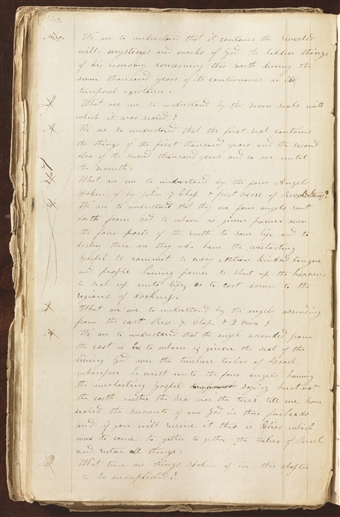 142
Ans. We are to understand that it contains the revealed
will mysteries and works of God the hidden things
of his economy concerning this earth during the
seven thousand years of its continuance or its
temporal existence.
Q What are we to understand by the seven seals with
which it was sealed?
A We are to understand that the first seal contains
the things of the first thousand years and the second
also of the second thousand years and so on until
the seventh.
Q What are we to understand by the four Angels
spoken of in the 7 Chap & first verse of Revelations?
A We are to understand that they are four angels sent
forth from God to whom is given power over
the four parts of the earth to save life and to
destroy these are they who have the everlasting
Gospel to commit to every Nation kindred tongue
and people having power to shut up the heavens
to seal up unto life or to cast down to the
regions of darkness.
Q What are we to understand by the angel ascending
from the east Rev. 7 chap. & 2 verse?
A We are to understand that the angel ascending from
the east is he to whom is given the seal of the
living God over the twelve tribes of Israel
wherefore he crieth unto the four angels having
the everlasting Gospel saying hurt not
the earth neither the sea nor the trees till we have
sealed the servants of our God in their foreheads
and if you will receive it this is Elias which
was to come to gather together the tribes of Israel
and restore all things.
Q What time are things spoken of in this chapter
to be accomplished?